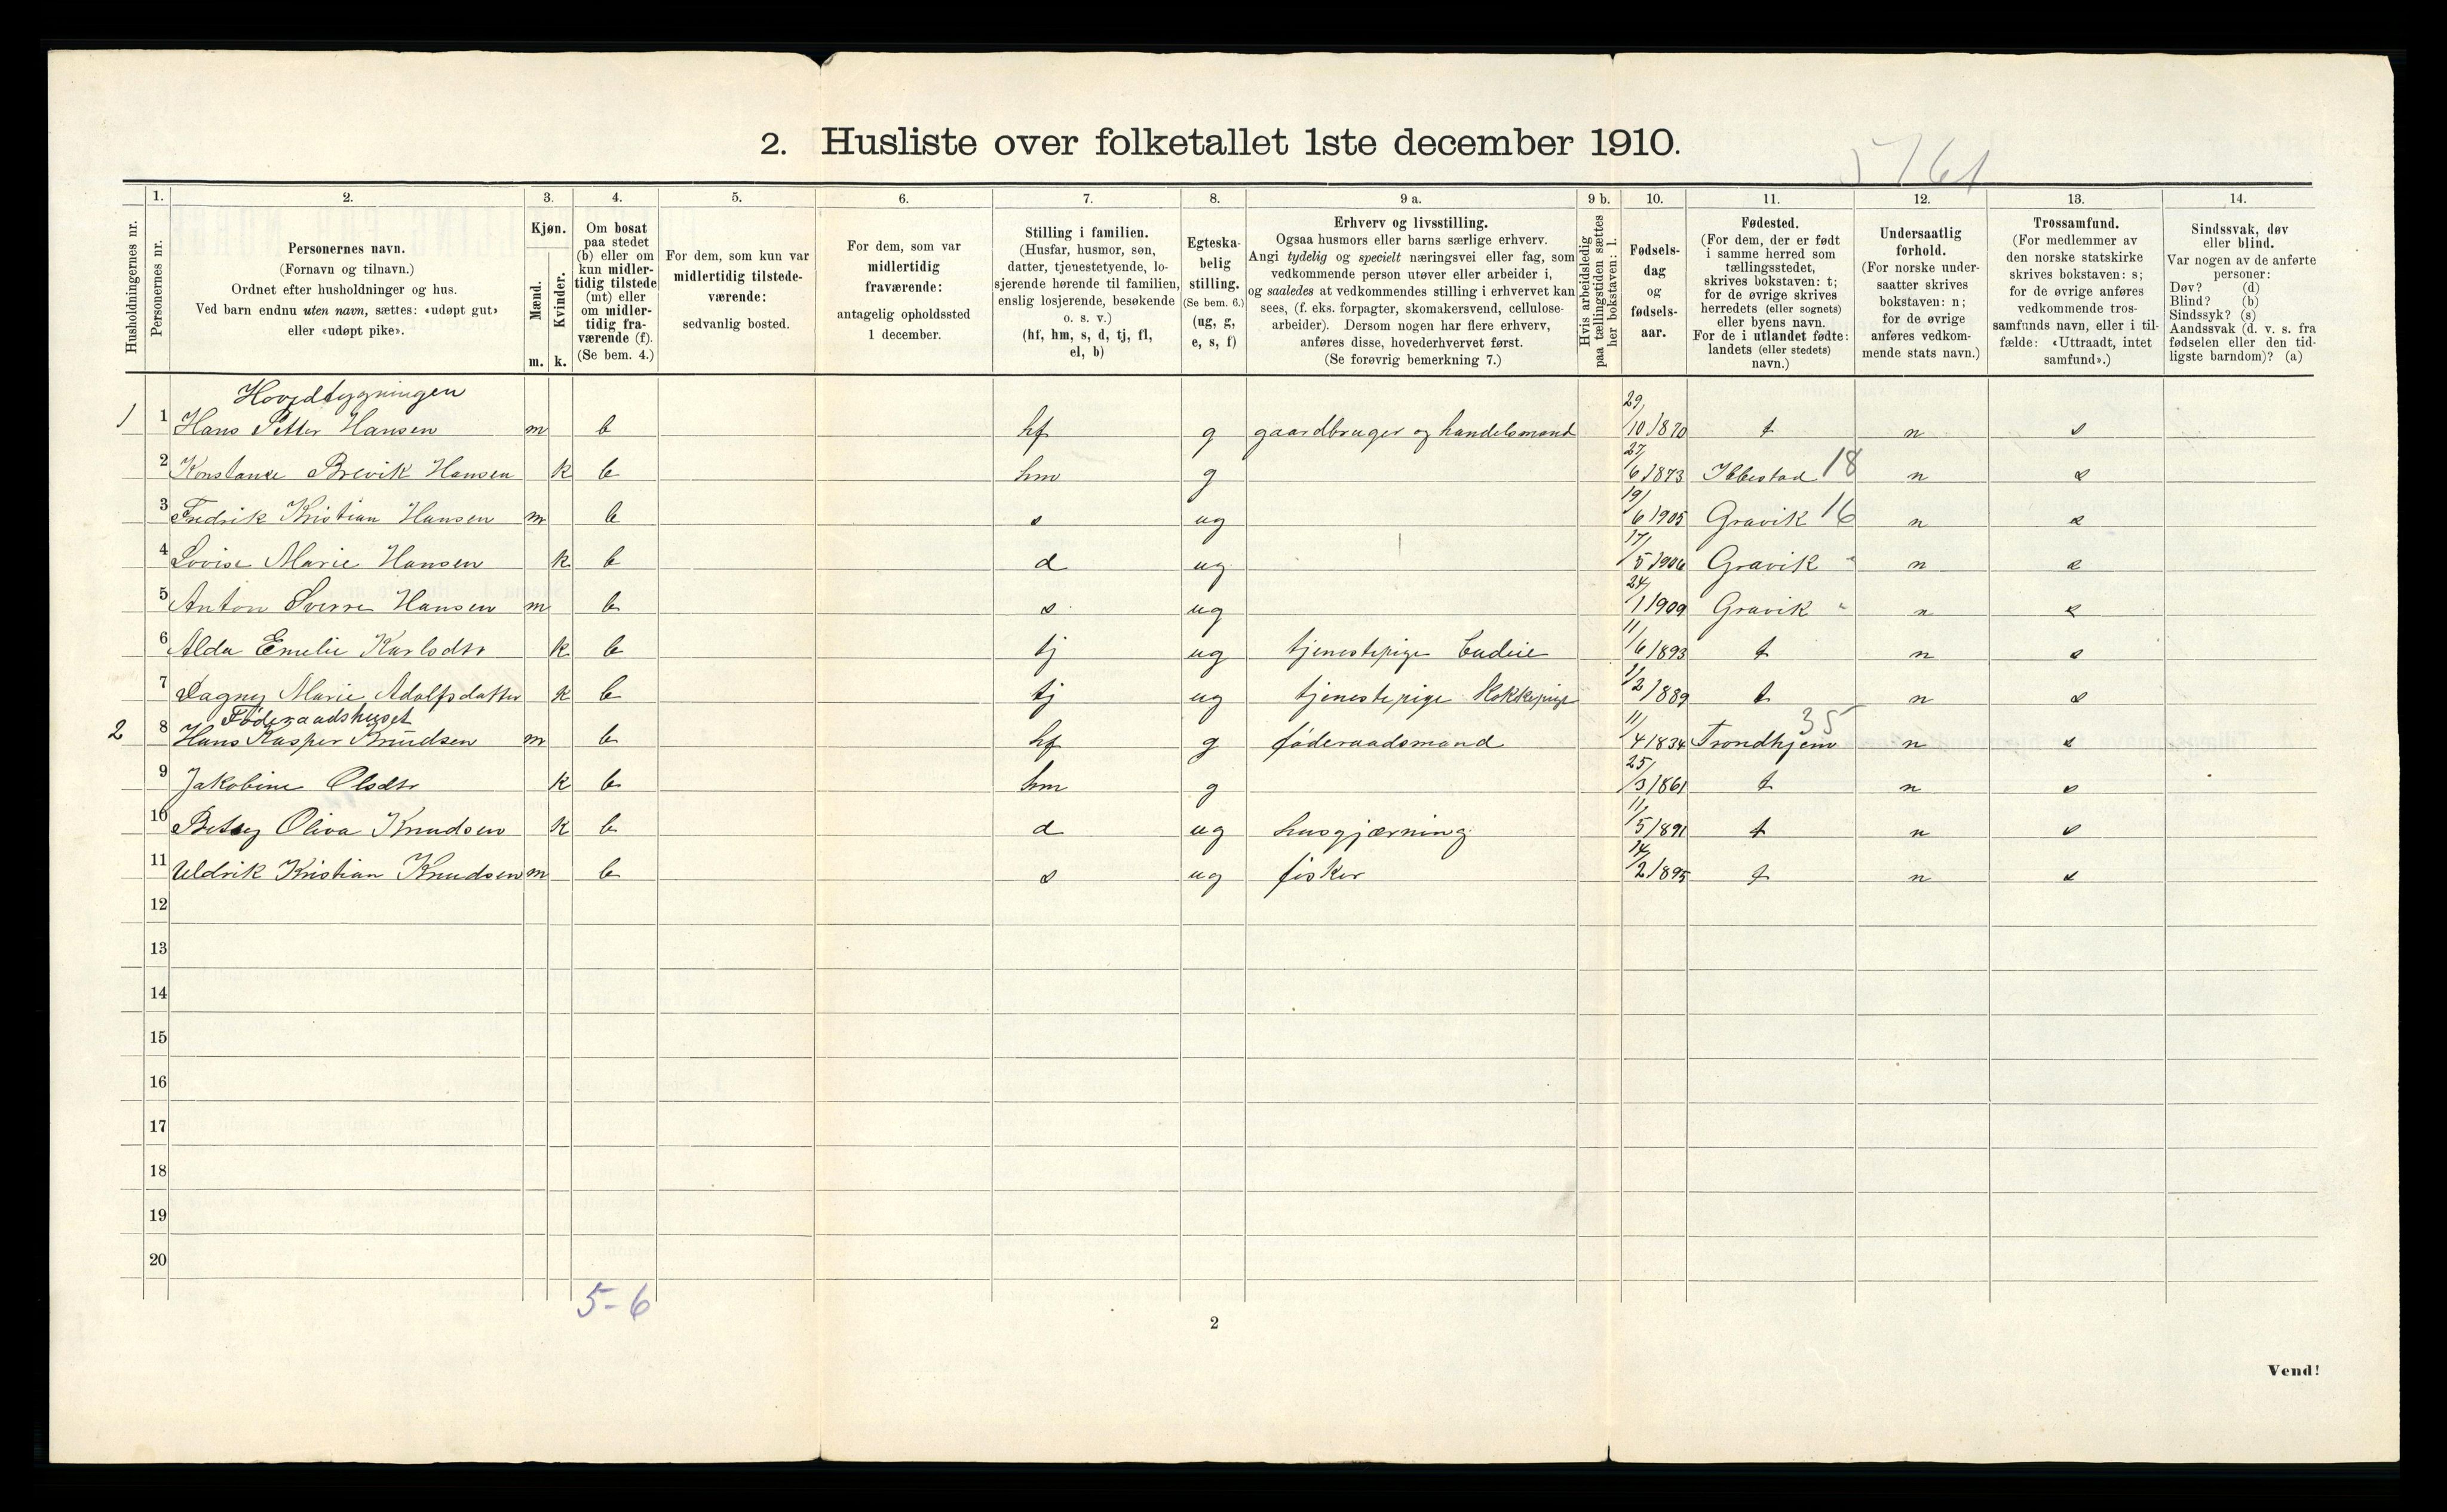 2. Husliste over folketallet 1ste december 1910.
Husholdningernes nr.
1. Personernes nr.
2. Personernes navn.
(Fornavn og tilnavn.)
Ordnet efter husholdninger og hus.
Ved barn endnu uten navn, sættes: «udøpt gut»
eller «udøpt pike».
3. Kjøn.
Mænd. m.
Kvinder. k.
4. Om bosat
paa stedet
(b) eller om
kun midler-
tidig tilstede
(mt) eller
om midler-
tidig fra-
værende (f).
(Se bem. 4.)
5. For dem, som kun var
midlertidig tilstede-
værende:
sedvanlig bosted.
6. For dem, som var
midlertidig
fraværende:
antagelig opholdssted
1 december.
7. Stilling i familien.
(Husfar, husmor, søn,
datter, tjenestetyende, lo-
sjerende hørende til familien,
enslig losjerende, besøkende
o. s. v.)
(hf, hm, s, d, tj, fl,
el, b)
8. Egteska-
belig
stilling.
(Se bem. 6.)
(ug, g,
e, s, f)
9 a. Erhverv og livsstilling.
Ogsaa husmors eller barns særlige erhverv.
Angi tydelig og specielt næringsvei eller fag, som
vedkommende person utøver eller arbeider i,
og saaledes at vedkommendes stilling i erhvervet kan
sees, (f. eks. forpagter, skomakersvend, cellulose-
arbeider). Dersom nogen har flere erhverv,
anføres disse, hovederhvervet først.
(Se forøvrig bemerkning 7.)
9 b. Hvis arbeidsledig
paa tællingstiden sættes
her bokstaven: l.
10. Fødsels-
dag
og
fødsels-
aar.
11. Fødested.
(For dem, der er født
i samme herred som
tællingsstedet,
skrives bokstaven: t;
for de øvrige skrives
herredets (eller sognets)
eller byens navn.
For de i utlandet fødte:
landets (eller stedets)
navn.)
12. Undersaatlig
forhold.
(For norske under-
saatter skrives
bokstaven: n;
for de øvrige
anføres vedkom-
mende stats navn.)
13. Trossamfund.
(For medlemmer av
den norske statskirke
skrives bokstaven: s;
for de øvrige anføres
vedkommende tros-
samfunds navn, eller i til-
fælde: «Uttraadt, intet
samfund».)
14. Sindssvak, døv
eller blind.
Var nogen av de anførte
personer:
Døv? (d)
Blind? (b)
Sindssyk? (s)
Aandssvak (d. v. s. fra
fødselen eller den tid-
ligste barndom)? (a)
Hovedbygningen
1 1 Hans Petter Hansen m b hf g gaardbruger og handelsmand 29/10 1870 t n s
2 Konstanse Brevik Hansen k b hm g 27/6 1873 Ibbestad 18 n s
3 Fredrik Kristian Hansen m b s ug 19/6 1905 Gravik 16 n s
4 Lovise Marie Hansen k b d ug 17/5 1906 Gravik " n s
5 Anton Sverre Hansen m b s ug 24/1 1909 Gravik " n s
6 Alda Emelie Karlsdtr k b tj ug tjenestepige budeie 11/6 1893 t n s
7 Dagny Marie Adolfsdatter k b tj ug tjenestepige Kokkepige /2 1889 t n s
Føderaadshuset
2 8 Hans Kasper Knudsen m b hf g føderaadsmand 11/4 1834 Trondhjem 35 n s
9 Jakobine Olsdtr k b hm g 25/3 1861 t n s
10 Betsy Oliva Knudsen k b d ug husgjærning 11/5 1891 t n s
11 Uldrik Kristian Knudsen m b s ug fisker 14/2 1895 t n s
12
13
14
15
16
17
18
19
20
5-6
2
Vend!